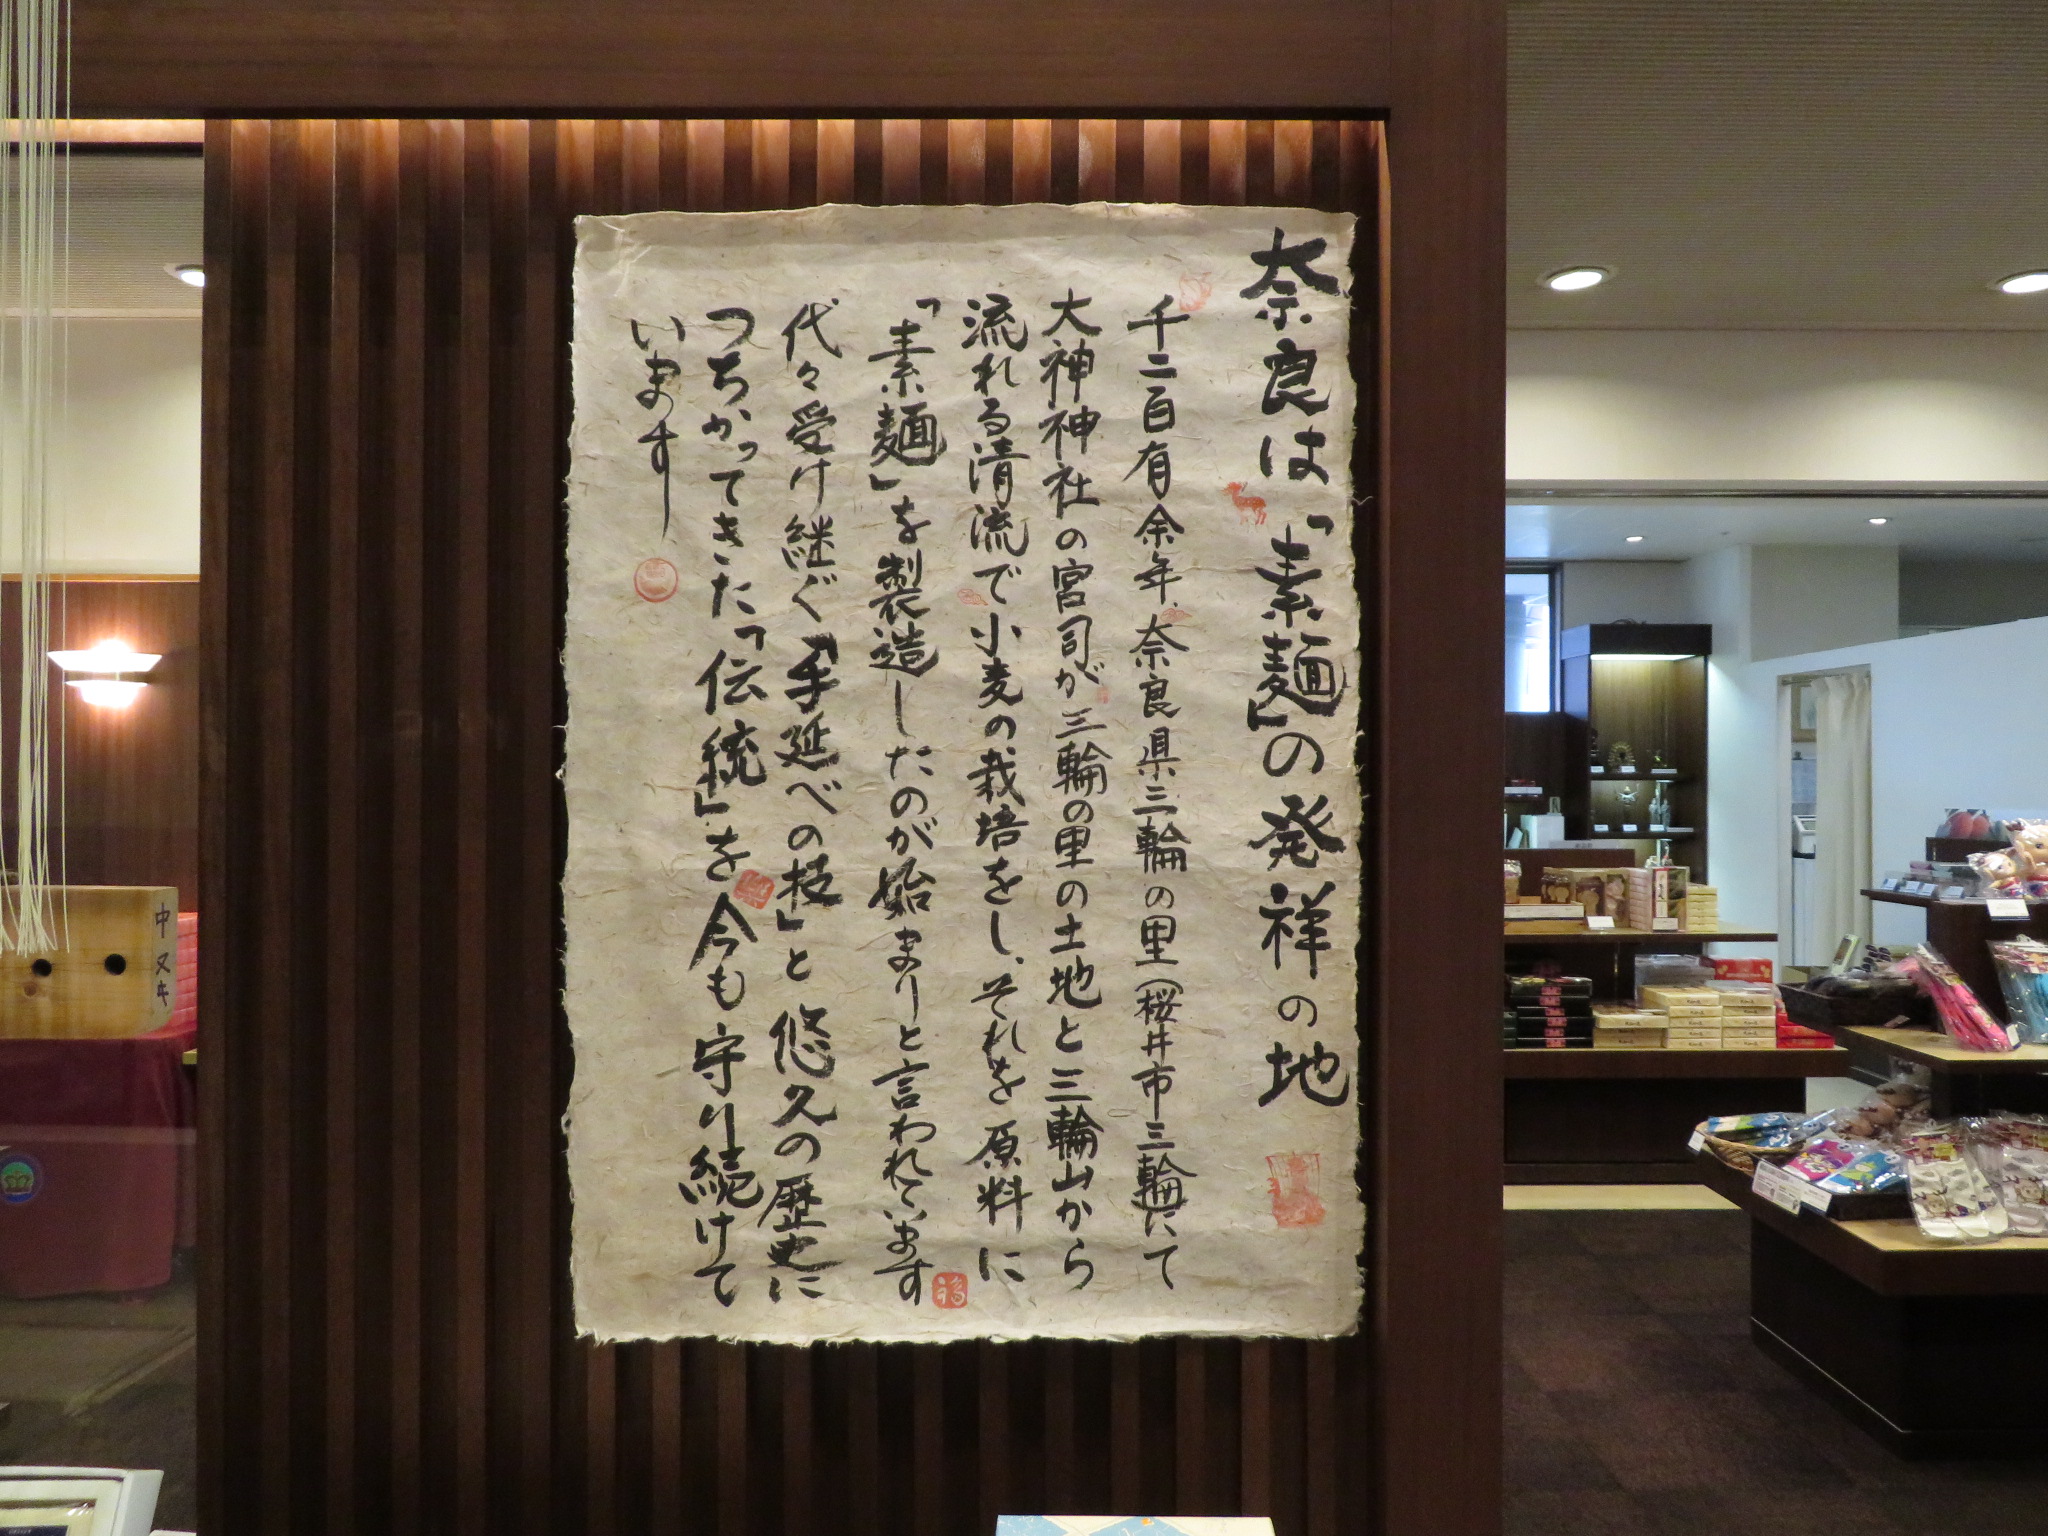 奈良は「素麺」の発祥の地
千二百有余年、奈良県三輪の里(桜井市三輪)にて
大神神社の宮司が三輪の里の土地と三輪山から
流れる清流で小麦の栽培をし、それを原料に
「素麺」を製造したのが始まりと言われています
代々受け継ぐ「手延べの技」と悠久の歴史に
つちかってきた「伝統」を今も守り続けて
います
福
中又キ